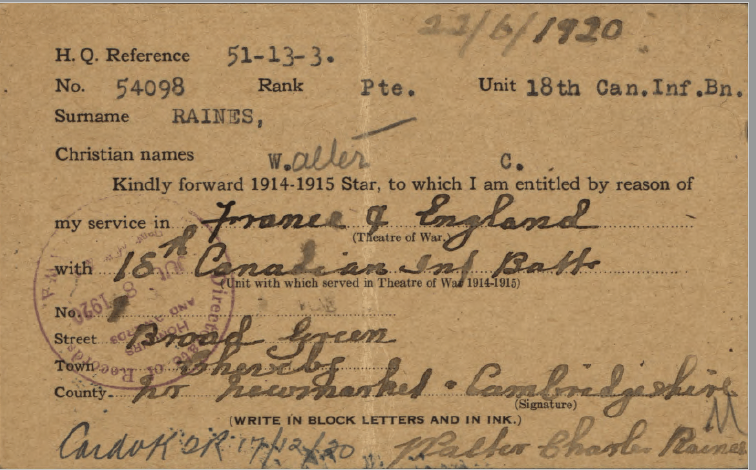 22/6/1920
H.Q. Reference 51-13-3.
No. 54098 Rank Pte. Unit 18th Can.Inf.Bn.
Surname RAINES,
Christian names W.alter C.
Kindly forward 1914-1915 Star, to which I am entitled by reason of
my service in France & England
(Theatre of War.)
with 18th Canadian Inf Batt
(Unit with which served in Theatre of War 1914-1915)
No.
Street Broad Green
Town
County. Nr Newmarket. Cambridgeshire
(Signature)
(WRITE IN BLOCK LETTERS AND IN INK.)
17/12/20 Walter Charles Raines
Directorate of Records
HONOURS
AND AWARDS
8 1920